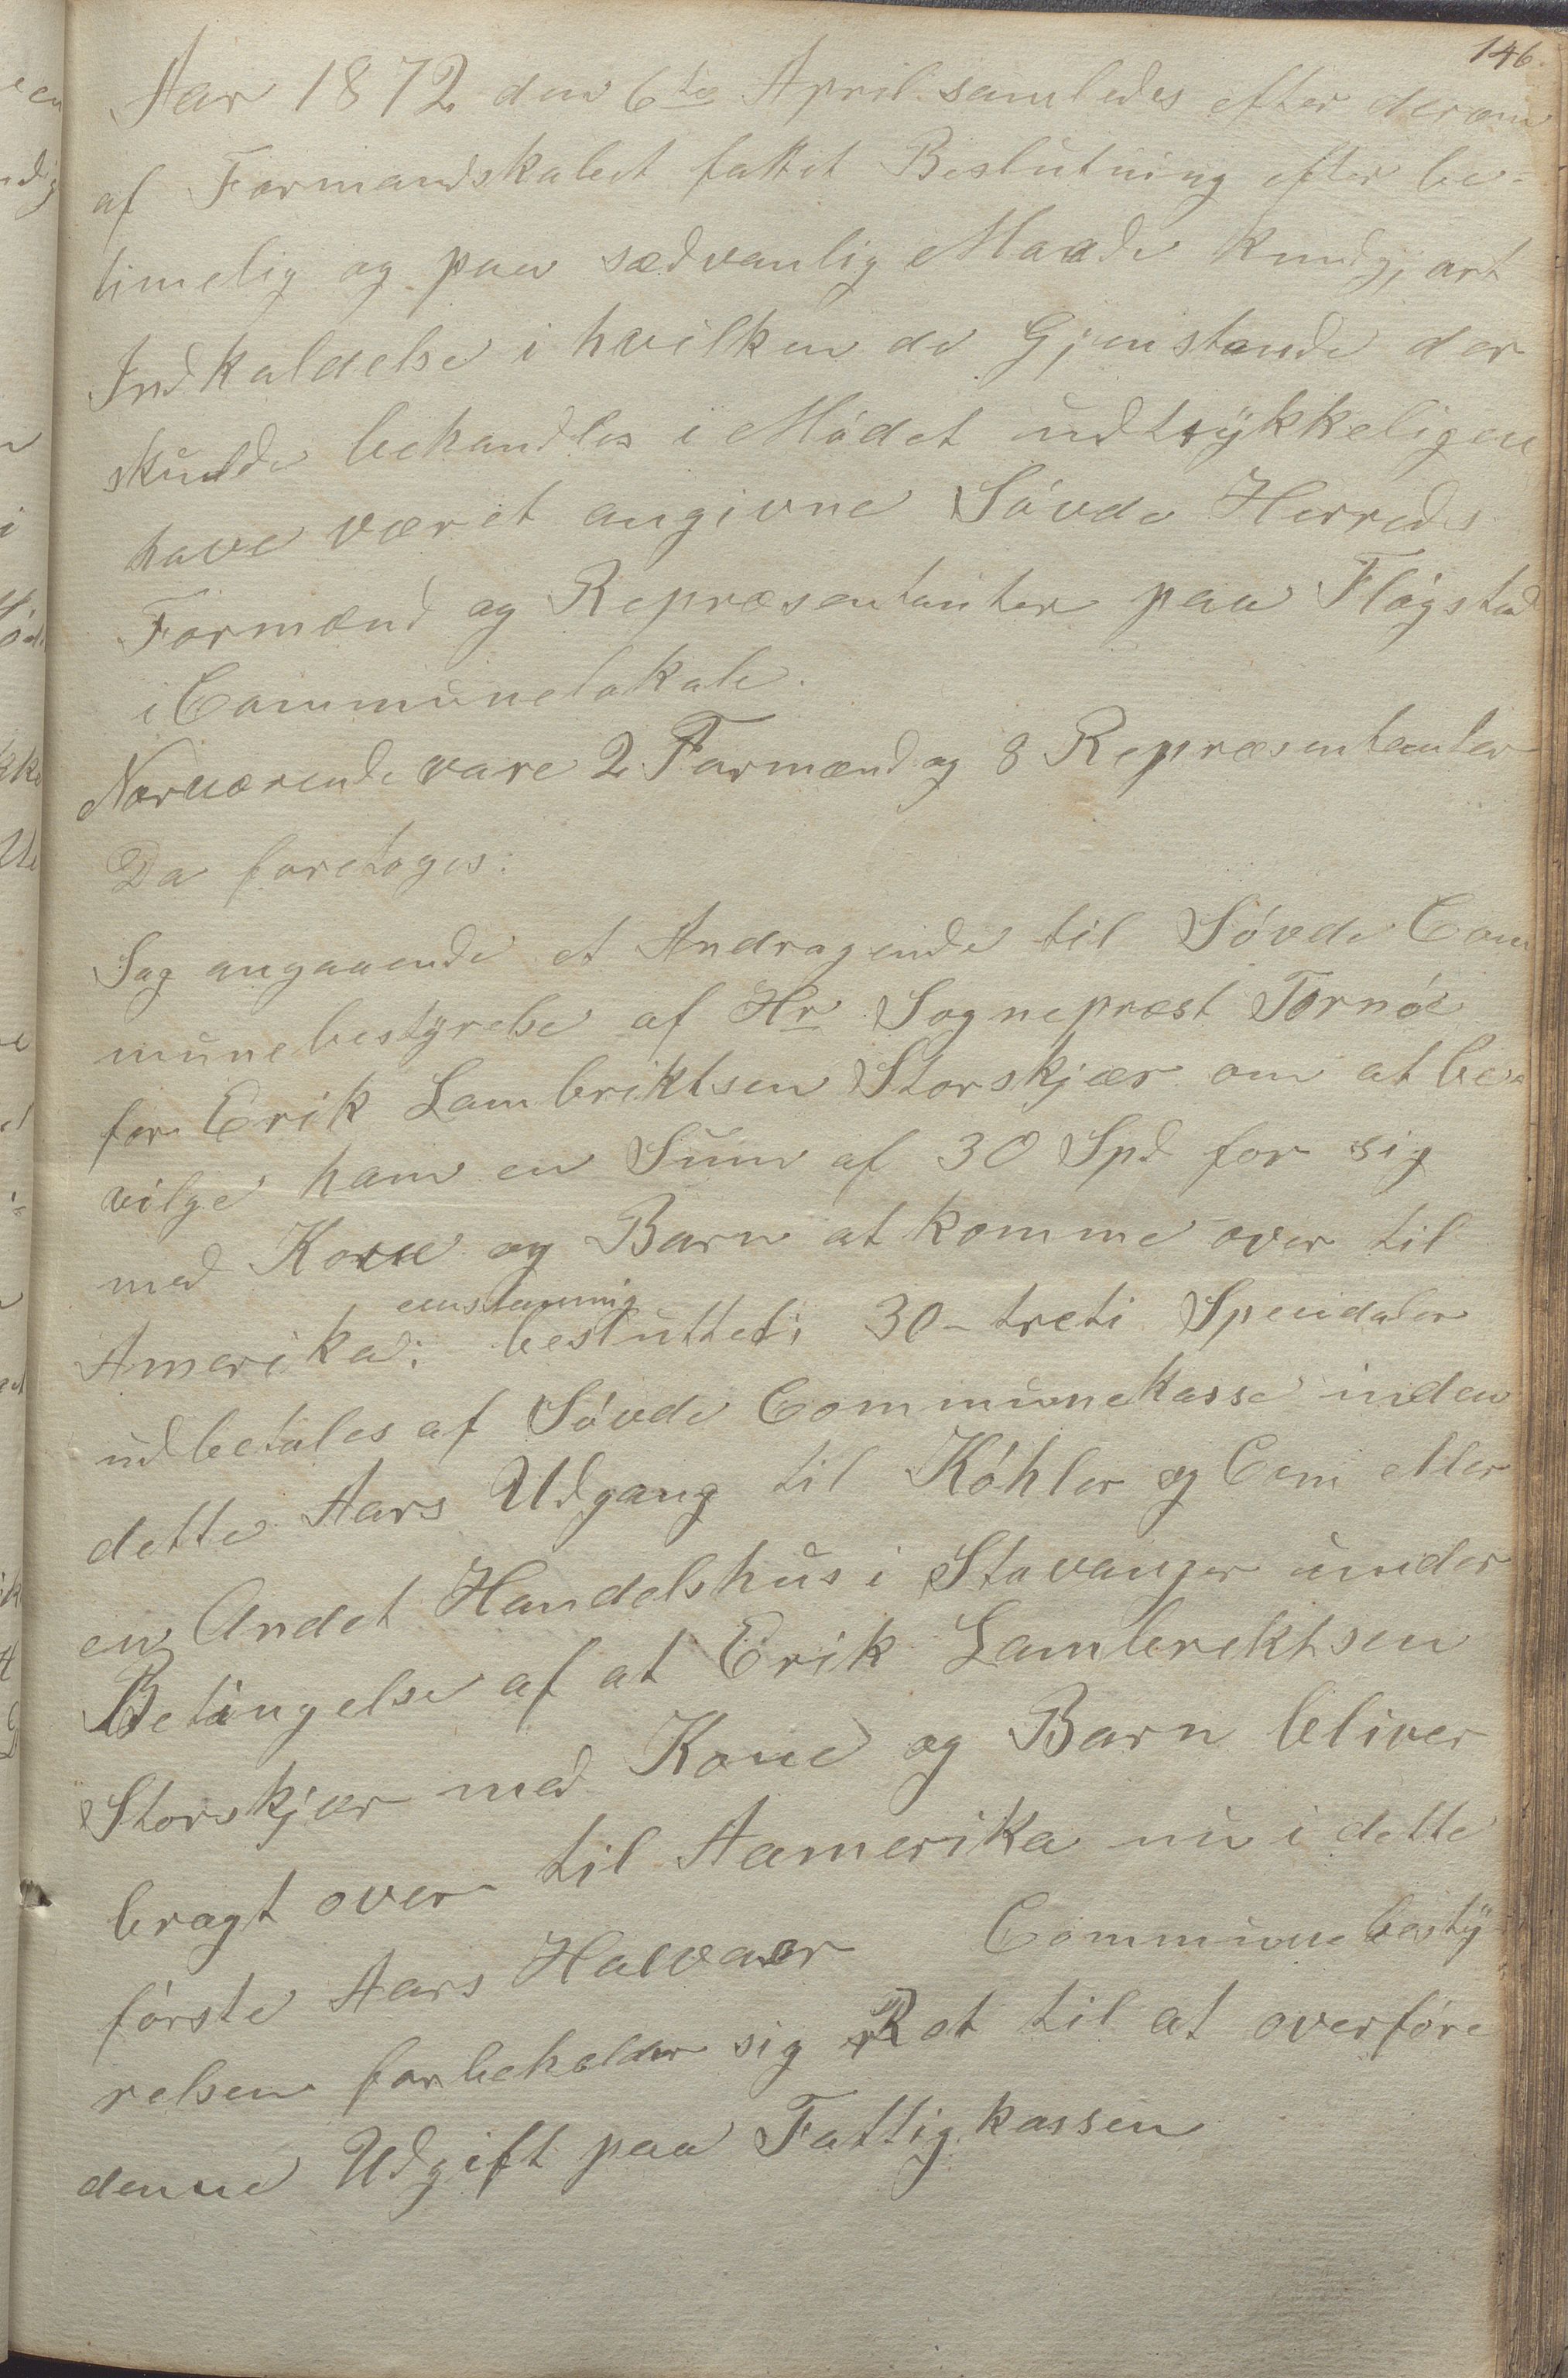 146.
Aar 1872 den 6te April samledes efter derom
af Formandskabet fattet Beslutning efter be-
timelig og paa sædvanlig Maade kundgjort
Indkaldelse i hvilken de Gjenstande der
skulde behandles i Mödet udtrykkeligen
have været angivne Sövde Herreds
Formænd og Repræsentanter paa Flögstad
i Communelokale.
Nærværende vare 2 Formænd og 8 Repræsentanter
Da foretoges:
Sag angaaende et Andragende til Sövde Com
munebestyrelse af Hr Sognepræst Tornöe
for Erik Lambriktsen Storskjær om at be-
vilge ham en Sum af 30 Spd for sig
med Kone og Barn at komme over til
enstemmig
Amerika: besluttet; 30 - treti Speridaler
udbetales af Sövde Communekasse inden
dette Aars Udgang til Köhler og Com eller
en Andet Handelshus i Stavanger under
Betingelse af at Erik Lambrektsen
Storskjær med Kone og Barn bliver
bragt over til Aamerika nu i dette
förste Aars Halvaar Communebesty
relsen forbeholder sig Ret til at overföre
denne Udgift paa Fattigkassen